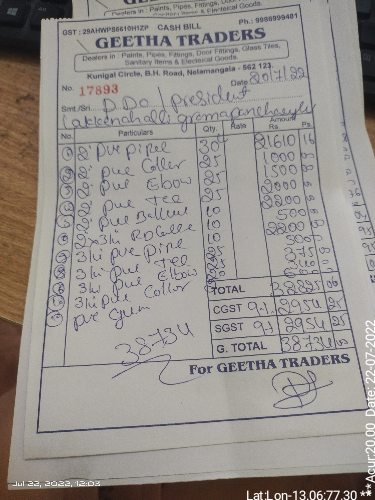 GST : 29AHWPS6610H1ZP CASH BILL Ph.: 9986999401
GEETHA TRADERS
Dealers in : Paints, Pipes, Fittings, Door Fittings, Glass Tiles,
Sanitary Items & Electrical Goods.
Kunigal Circle, B.H. Road, Nelamangala - 562 123.
No. 17893 Date 20/7/22
Smt./Sri. P.D.O / president
No. Particulars Qty. Rate Amount Rs. Ps.
pvc pipe 30 21610
pvc Coller 25 1000
pvc Elbow 25 1500
pvc Tee 25 2000
pvc 10 2200
10 500
3/4 pvc pipe 10 2200
3/4 pvc Tee 25 500
3/4 pvc Elbow 25 375
3/4 pvc Coller
pvc Gum
TOTAL 32825
CGST 9% 2954 25
SGST 9% 2954 25
G. TOTAL 38734
38734
For GEETHA TRADERS
Jul 22, 2022, 12:03
Lat:Lon-13.06:77.30
**Acur:20.00 Date: 22-07-2022